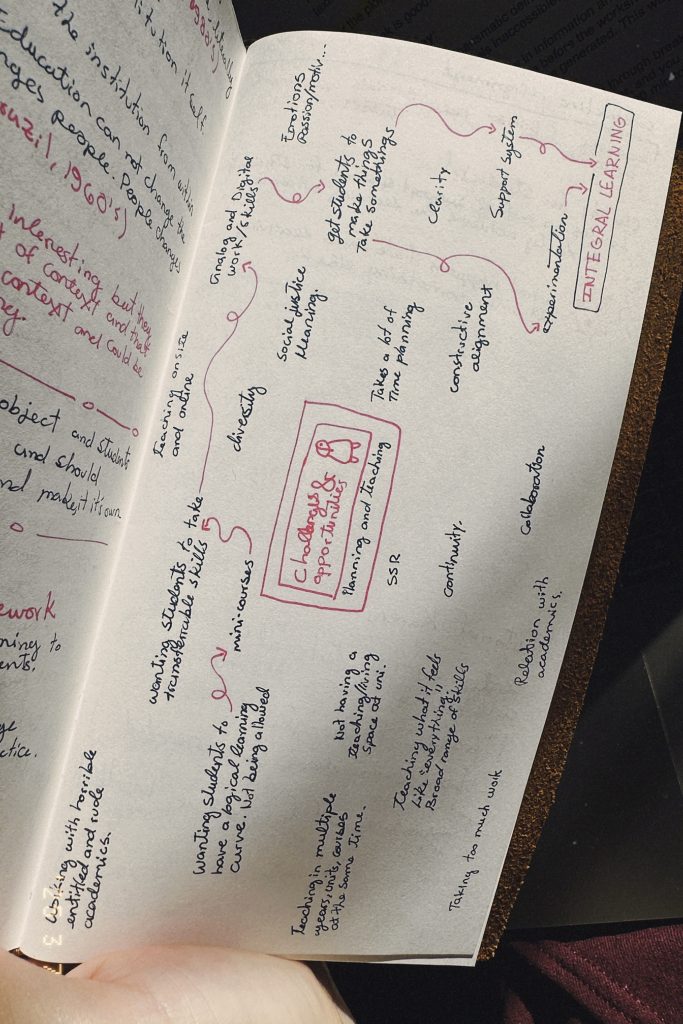 the institution from within
Education can not change the
people. People changes
1960's)
interesting but they
of context and that
context and could be
object and students
and should
and make it it's own
work
Working with horrible
entitled and rude
academics.
Wanting students to
have a logical learning
curve. Not being allowed
mini-courses
wanting students to take
transferrable skills
Teaching onsite
and online
Analog and Digital
work/skills
Emotions
Passion/motiv...
get students to
make things
Take somethings
diversity
Social justice
Meaning.
Challenges &
opportunities
Planning and teaching
Takes a lot of
Time planning
Clarity
Support System
INTEGRAL LEARNING
experimentation
constructive
alignment
SSR
continuity.
Collaboration
Not having a
teaching/living
space at uni.
Teaching in multiple
years, units, courses
at the same time.
Teaching what it feels
Like "everything"
Broad range of skills
Relation with
academics.
Taking too much work